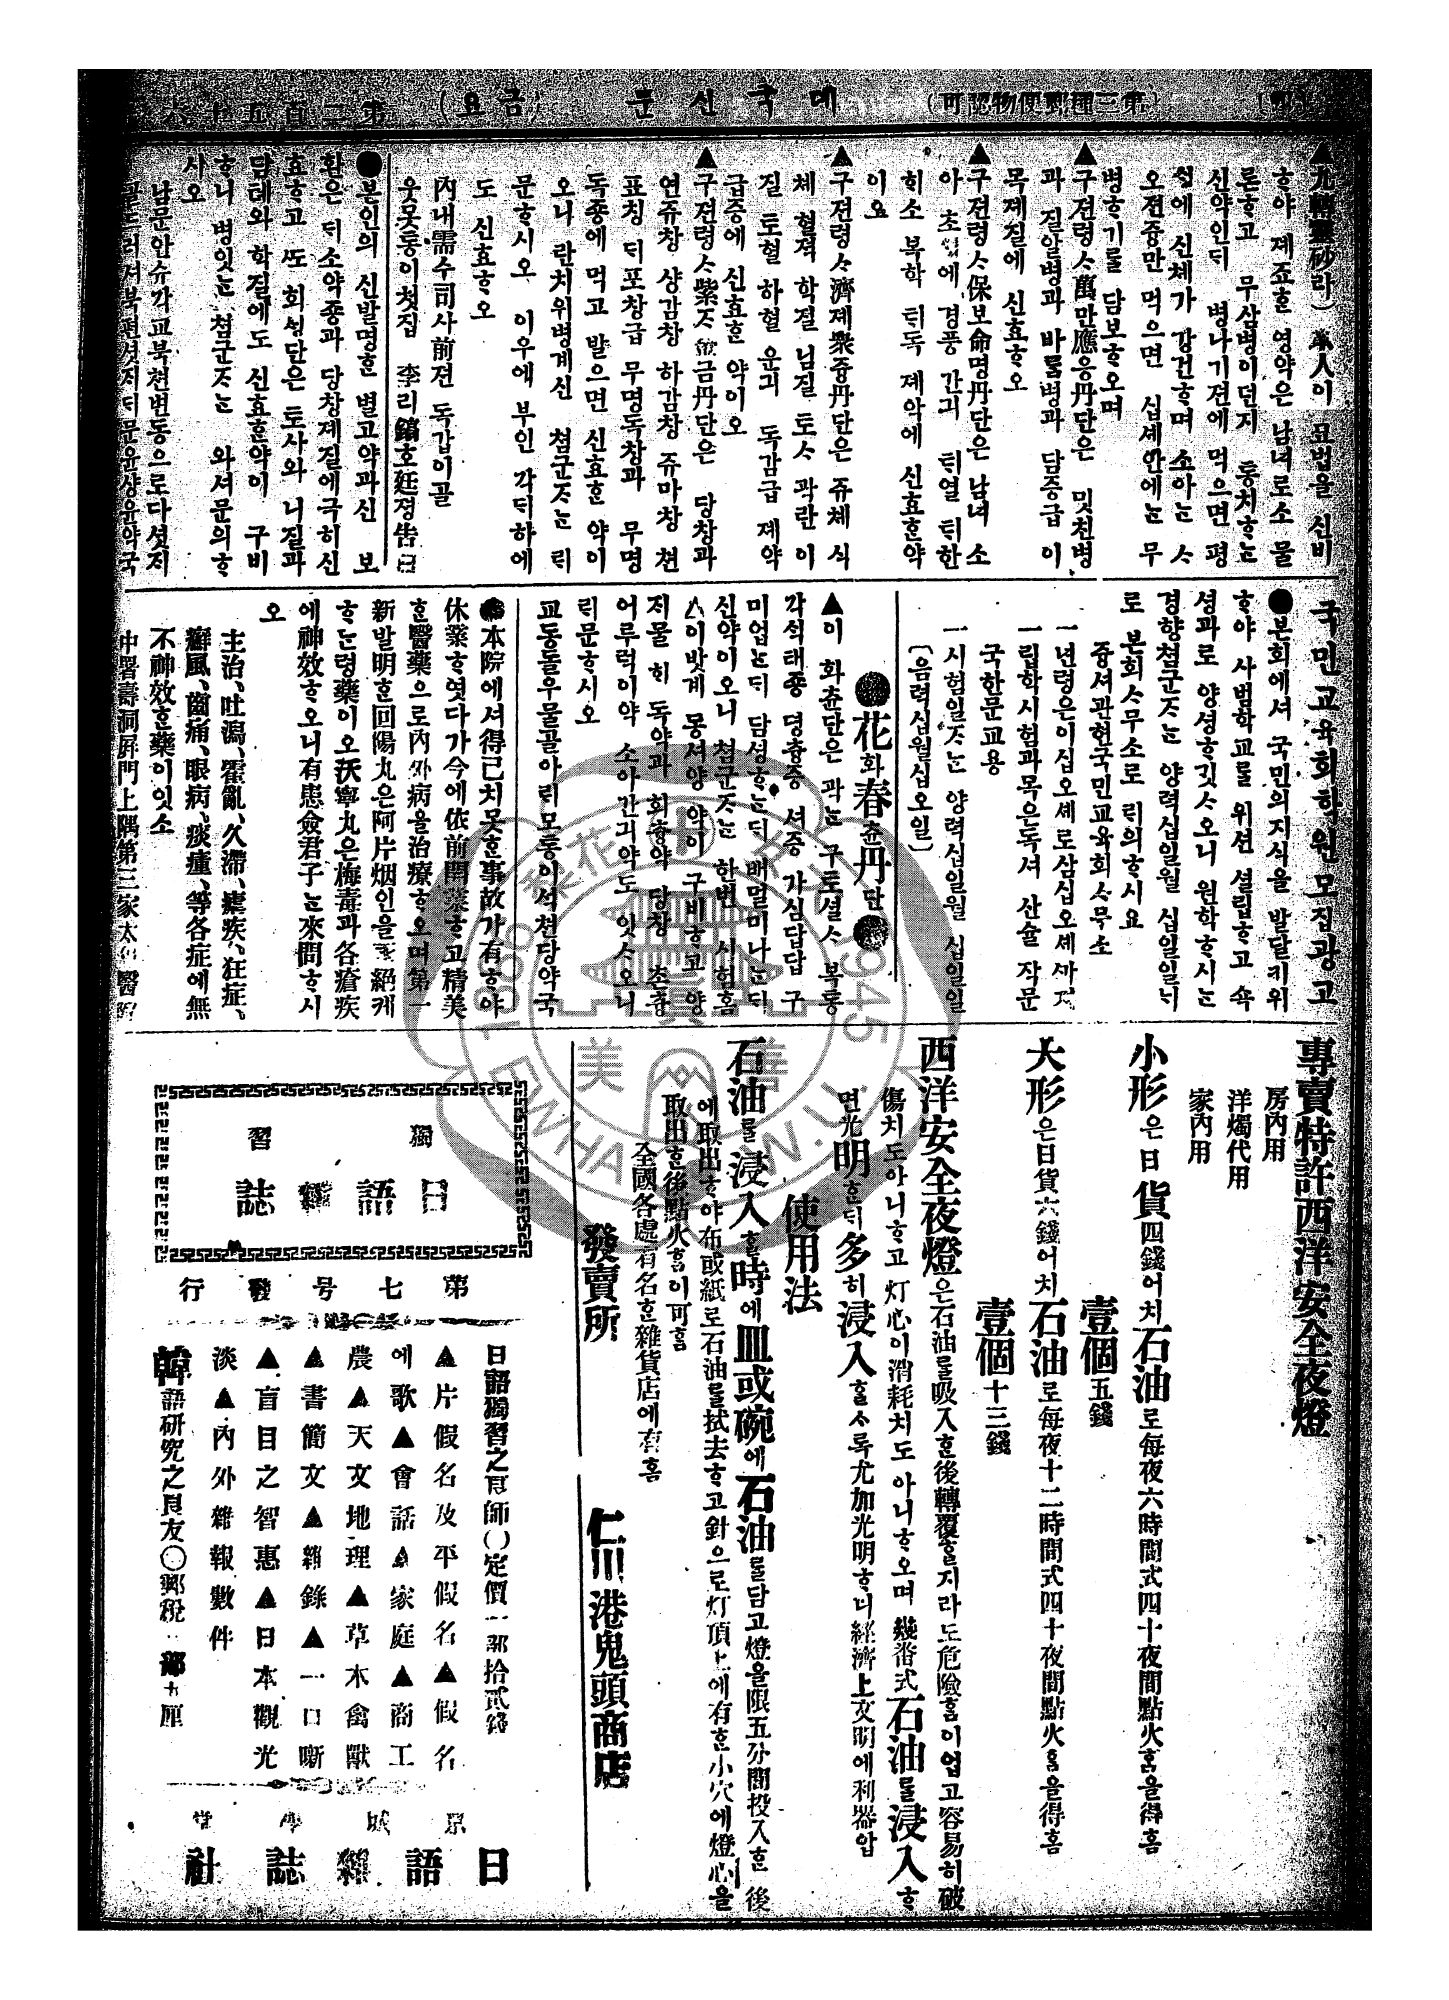 （四） （第三種郵便物認可） 뎨국신문 （금요） 第二百五十六
▲九轉靈砂라） 本人이 묘법을 신비
ᄒᆞ야 졔죠ᄒᆞᆫ 영약은 남녀로소 물
론ᄒᆞ고 무삼병이던지 통치ᄒᆞᄂᆞᆫ
신약인ᄃᆡ 병나기젼에 먹으면 평
ᄉᆡᆼ에 신톄가 강건ᄒᆞ며 소아ᄂᆞᆫ ᄉᆞ
오젼즁만 먹으면 십셰안에ᄂᆞᆫ 무
병ᄒᆞ기를 담보ᄒᆞ오며
▲구젼령ᄉᆞ萬만應응丹단은 밋친병
과 질알병과 바ᄅᆞᆷ병과 담증급 이
목졔질에 신효ᄒᆞ오
▲구젼령ᄉᆞ保보命명丹단은 남녀 소
아 초 에 경풍 간긔 틔열 틔한
히소 복학 틔독 졔악에 신효ᄒᆞᆫ약
이요
▲구젼령ᄉᆞ濟졔衆즁丹단은 쥬쳬 식
쳬 혈젹 학졀 님질 토ᄉᆞ 곽란 이
질 토혈 하혈 운긔 독감급 졔약
급증에 신효ᄒᆞᆫ 약이오
▲구젼령ᄉᆞ紫ᄌᆞ金금丹단은 당창과
연쥬창 샹감창 하감창 쥬마창 쳔
표칭 ᄃᆡ포창급 무명독창과 무명
독종에 먹고 발으면 신효ᄒᆞᆫ 약이
오니 란치위병계신 쳠군ᄌᆞᄂᆞᆫ ᄅᆡ
문ᄒᆞ시오 이우에 부인 각ᄃᆡ하에
도 신효ᄒᆞ오
內내需수司사前젼 독갑이골
웃웃동이첫집 李리鎬호廷졍告白
●본인의 신발명ᄒᆞᆫ 별고약과신 보
환은 ᄃᆡ소약종과 당창졔질에극히신
효ᄒᆞ고 ᄯᅩ 회ᄉᆡᆼ단은 토사와 니질과
담톄와 학질에도 신효ᄒᆞᆫ약이 구비
ᄒᆞ니 병잇ᄂᆞᆫ 쳠군ᄌᆞᄂᆞᆫ 와셔문의ᄒᆞ
사오
남문안슈각교북쳔변동으로다섯지
골드러셔북편첫지ᄃᆡ문윤샹윤약국
국민교육회학원모집광고
●본회에셔 국민의지식을 발달키위
ᄒᆞ야 사범학교를 위션 셜립ᄒᆞ고 속
셩과로 양셩ᄒᆞ깃ᄉᆞ오니 원학ᄒᆞ시ᄂᆞᆫ
경향쳠군ᄌᆞᄂᆞᆫ 양력십일월 십일일ᄂᆡ
로 본회ᄉᆞ무소로 ᄅᆡ의ᄒᆞ시요
즁셔관현국민교육회ᄉᆞ무소
一년령은이십오셰로삼십오셰ᄭᆞ지
一립학시험과목은독셔 산슐 작문
국한문교용
一시험일ᄌᆞᄂᆞᆫ 양력십일월 십일일
（음력십월십오일）
●花화春츈丹단●
▲이 화츈단은 곽ᄂᆞᆫ 구토셜ᄉᆞ 복통
각석태증 명츙증 셔증 가심답답 구
미업ᄂᆞᆫᄃᆡ 담셩ᄒᆞᄂᆞᆫᄃᆡ ᄇᆡ멀미나ᄂᆞᆫᄃᆡ
신약이오니 쳠군ᄌᆞᄂᆞᆫ 한번 시험홈
▲이밧게 몽셔양 약이 구비ᄒᆞ고 양
지물 히 독약과 회츙약 당창 초츙
어루럭이약 소아간긔약도 잇ᄉᆞ오니
ᄅᆡ문ᄒᆞ시오
교동돌우물골아ᄅᆡ모퉁이셕쳔당약국
●本院에셔得已치못ᄒᆞᆫ事故가有ᄒᆞ야
休業ᄒᆞ엿다가今에依前開業ᄒᆞ고精美
ᄒᆞᆫ醫藥으로內外病을治療ᄒᆞ오며第一
新發明ᄒᆞᆫ回陽丸은阿片烟인을永絕케
ᄒᆞᄂᆞᆫ령藥이오沃寧丸은梅毒과各瘡疾
에神效ᄒᆞ오니有患僉君子ᄂᆞᆫ來問ᄒᆞ시
오
主治、吐瀉、霍亂、久滯、瘧疾、狂症、
癬風、齒痛、眼病、痰瘇、等各症에無
不神效ᄒᆞᆫ藥이잇소
中署壽洞屏門上隅第三家太 醫院
專賣特許西洋安全夜燈
房內用
洋燭代用
家內用
小形은日貨四錢어치石油로每夜六時間式四十夜間點火홈을得홈
壹個五錢
大形은日貨六錢어치石油로每夜十二時間式四十夜間點火홈을得홈
壹個十三錢
西洋安全夜燈은石油를吸入ᄒᆞᆫ後轉覆ᄒᆞᆯ지라도危險홈이업고容易히破
傷치도아니ᄒᆞ고 灯心이消耗치도 아니ᄒᆞ오며 幾畨式石油를浸入ᄒᆞ
면光明ᄒᆞᆫᄃᆡ多히浸入ᄒᆞᆯᄉᆞ록尤加光明ᄒᆞ니經濟上文明에利器압
使用法
石油를浸入ᄒᆞᆯ時에皿或碗에石油를담고燈을限五分間投入ᄒᆞᆫ後
에取出ᄒᆞ야布或紙로石油를拭去ᄒᆞ고針으로灯頂上에有ᄒᆞᆫ小穴에燈心을
取出ᄒᆞᆫ後點火홈이可홈
全國各處有名ᄒᆞᆫ雜貨店에有홈
發賣所 仁川港鬼頭商店
獨習
日語雜誌
第七号發行
日語獨習之良師〇定價一部拾貳錢
▲片假名及平假名▲假名
에歌▲會話▲家庭▲商工
農▲天文地理▲草木禽獸
▲書簡文▲雜錄▲一口噺
▲盲目之智惠▲日本觀光
淡▲內外雜報數件
韓語研究之良友〇郵稅一部五厘
京城學堂
日語雜誌社
梨花 女 1945 EWHA 1886 善 美 眞